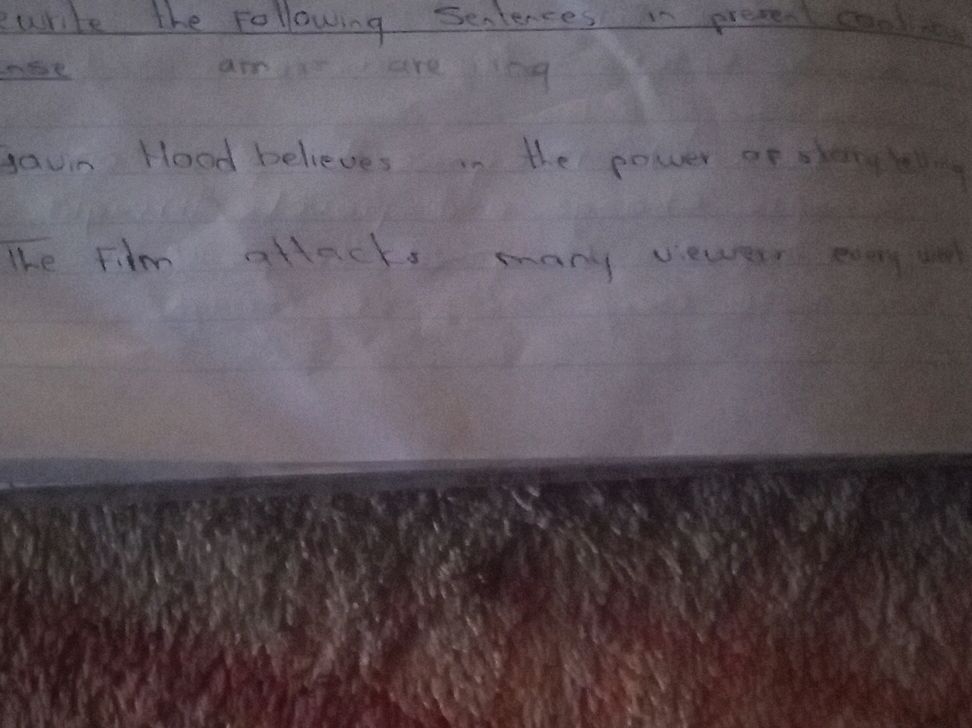 ewrite the Following Sentences in present contin
nse am is are ing
Gavin Hood believes in the power of storytelling
The Film attacks many viewers every